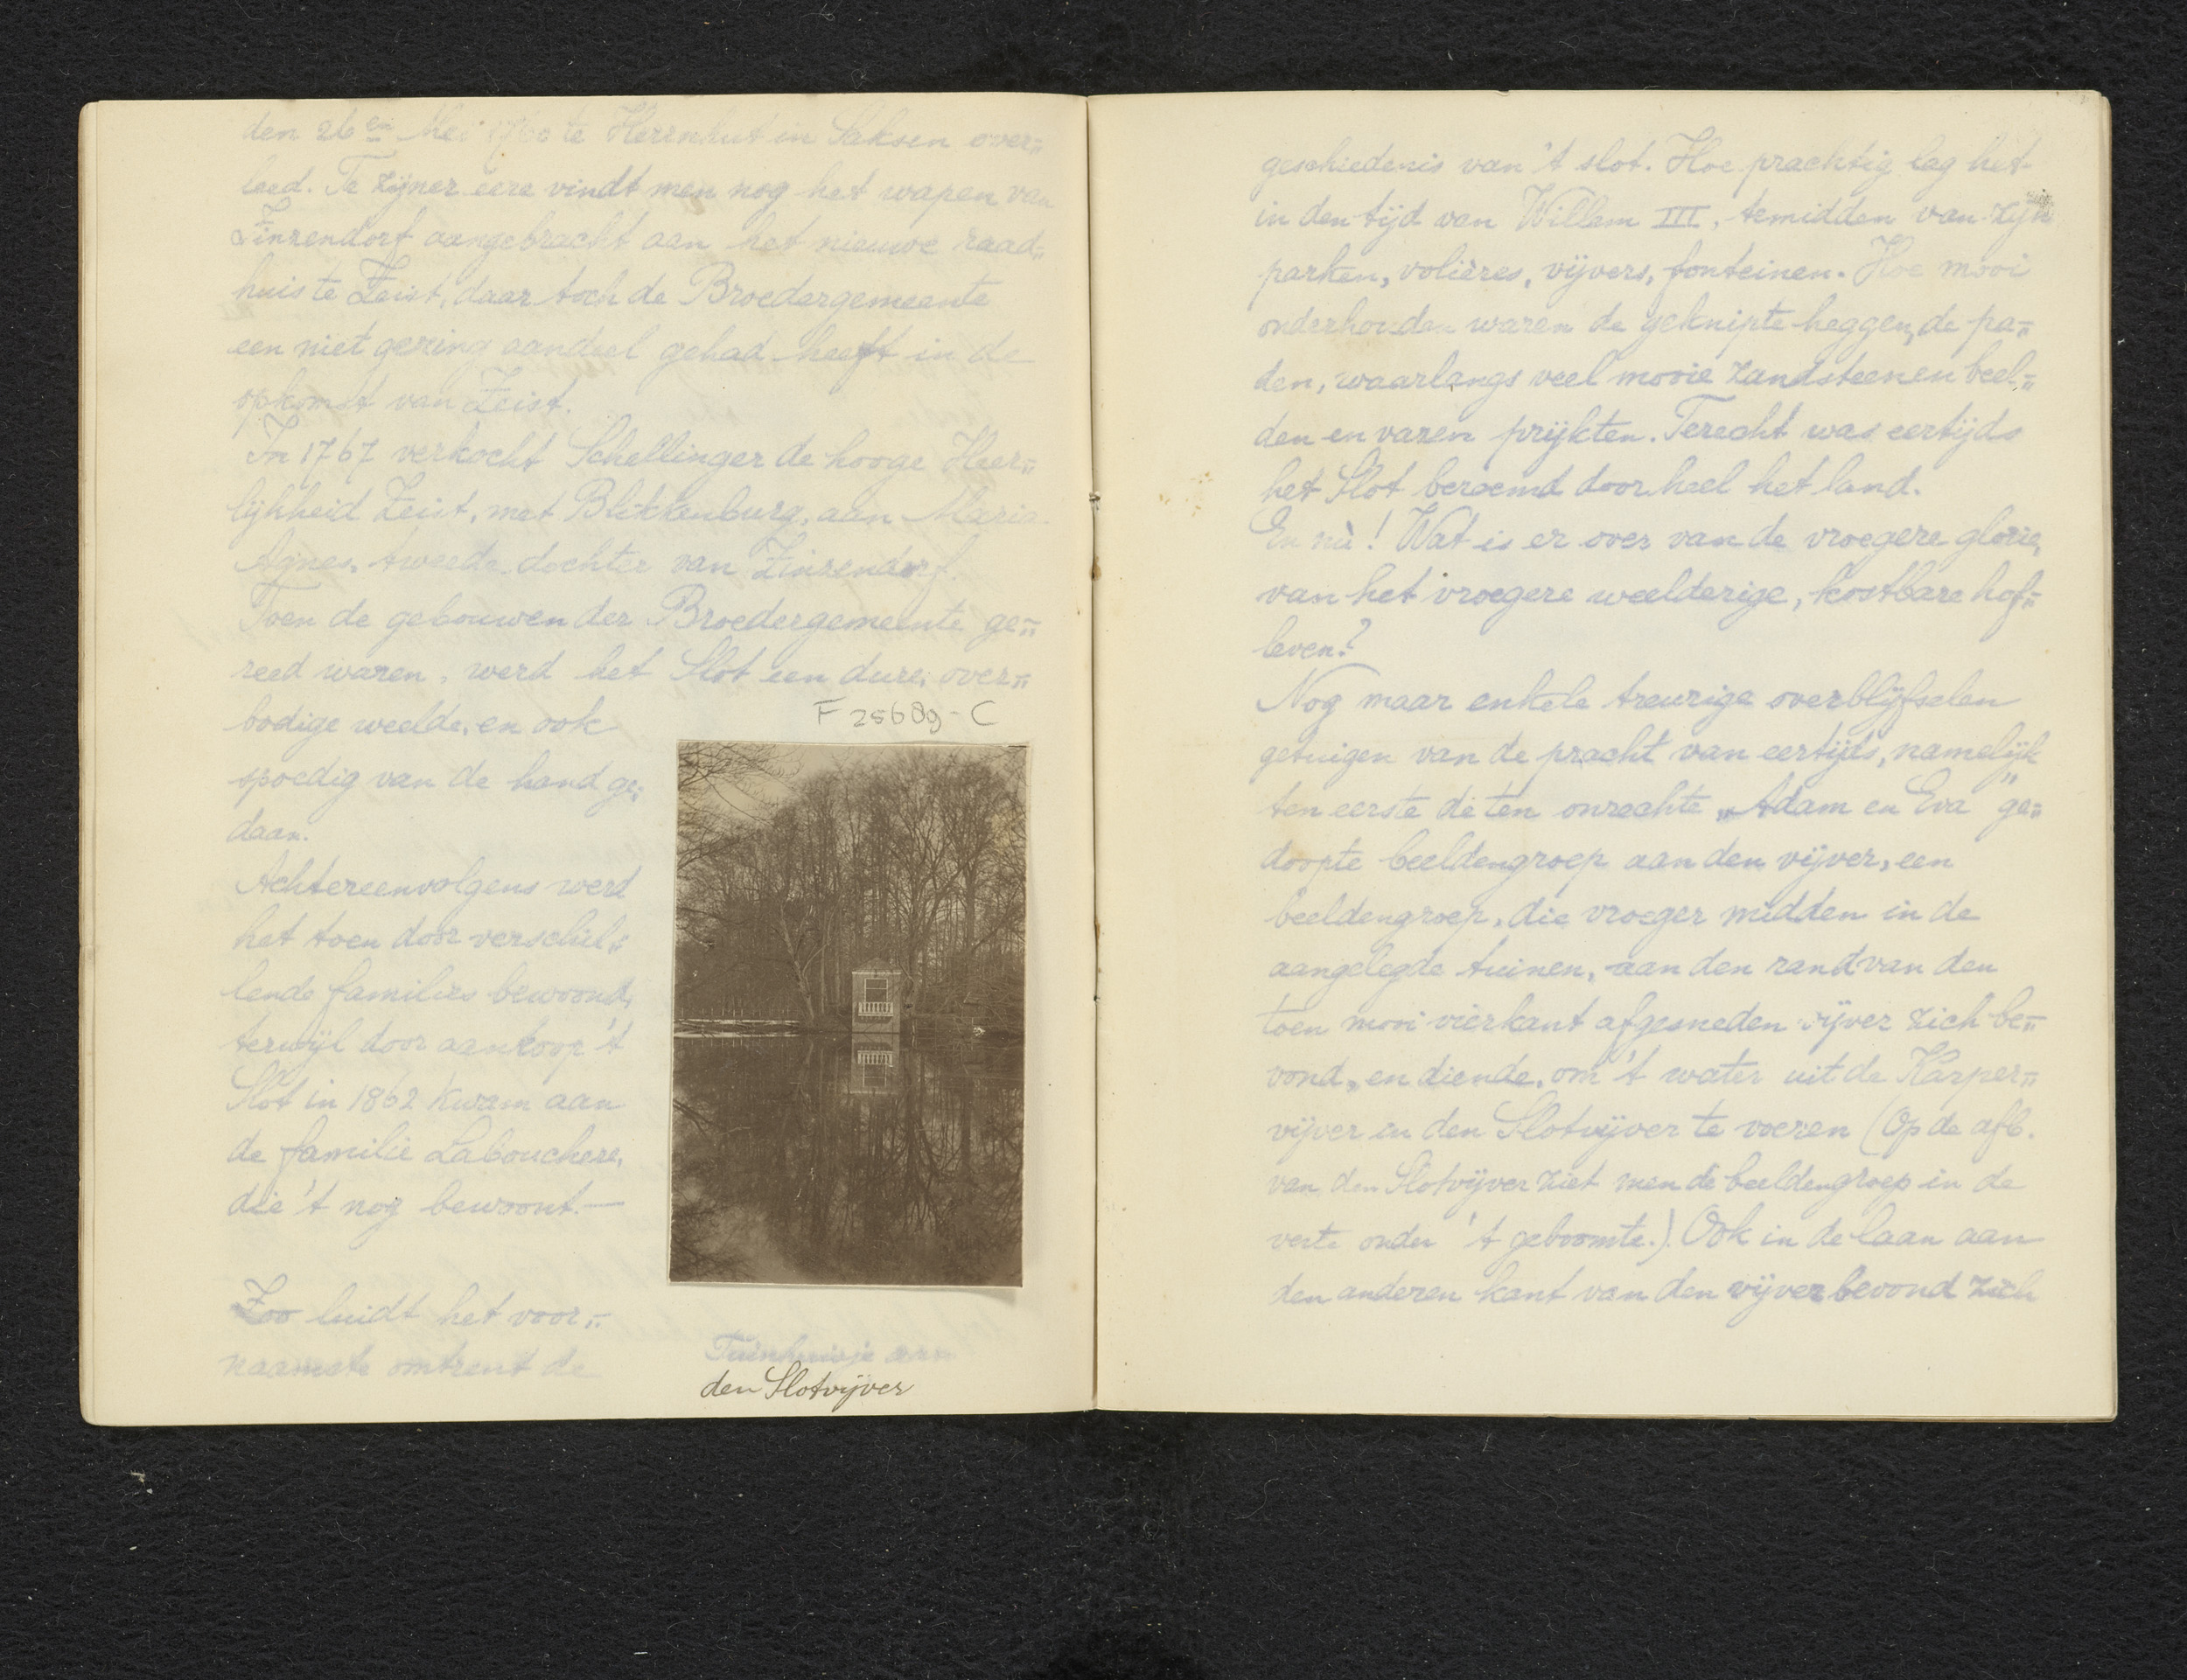 den 26en Mei 1760 te Herrnhut in Saksen over=
leed. Te zijner eere vindt men nog het wapen van
Zinzendorf aangebracht aan het nieuwe raad=
huis te Zeist, daar toch de Broedergemeente
een niet gering aandeel gehad heeft in de
opkomst van Zeist.
In 1767 verkocht Schellinger de hooge Heer=
lijkheid Zeist, met Blikkenburg, aan Maria
Agnes, tweede dochter van Zinzendorf.
Toen de gebouwen der Broedergemeente ge=
reed waren, werd het Slot een dure, over=
bodige weelde, en ook
spoedig van de hand ge=
daan.
Achtereenvolgens werd
het toen door verschil=
lende families bewoond,
terwijl door aankoop 't
Slot in 1862 kwam aan
de familie Labouchere,
die 't nog bewoont.—
Zoo luidt het voor=
naamste omtrent de
F 25689-C
Tuinhuisje aan
den Slotvijver
geschiedenis van 't slot. Hoe prachtig lag het
in den tijd van Willem III, temidden van zijn
parken, volières, vijvers, fonteinen. Hoe mooi
onderhouden waren de geknipte heggen, de pa=
den, waarlangs veel mooie zandsteenen beel=
den en vazen prijkten. Terecht was eertijds
het Slot beroemd door heel het land.
En nù! Wat is er over van de vroegere glorie,
van het vroegere weelderige, kostbare hof=
leven?
Nog maar enkele treurige overblijfselen
getuigen van de pracht van eertijds, namelijk
ten eerste de ten onrechte „Adam en Eva" ge=
doopte beeldengroep aan den vijver, een
beeldengroep, die vroeger midden in de
aangelegde tuinen, aan den rand van den
toen mooi vierkant afgesneden vijver zich be=
vond, en diende, om 't water uit de Karper=
vijver in den Slotvijver te voeren (Op de afb.
van den Slotvijver ziet men de beeldengroep in de
verte onder 't geboomte.). Ook in de laan aan
den anderen kant van den vijver bevond zich